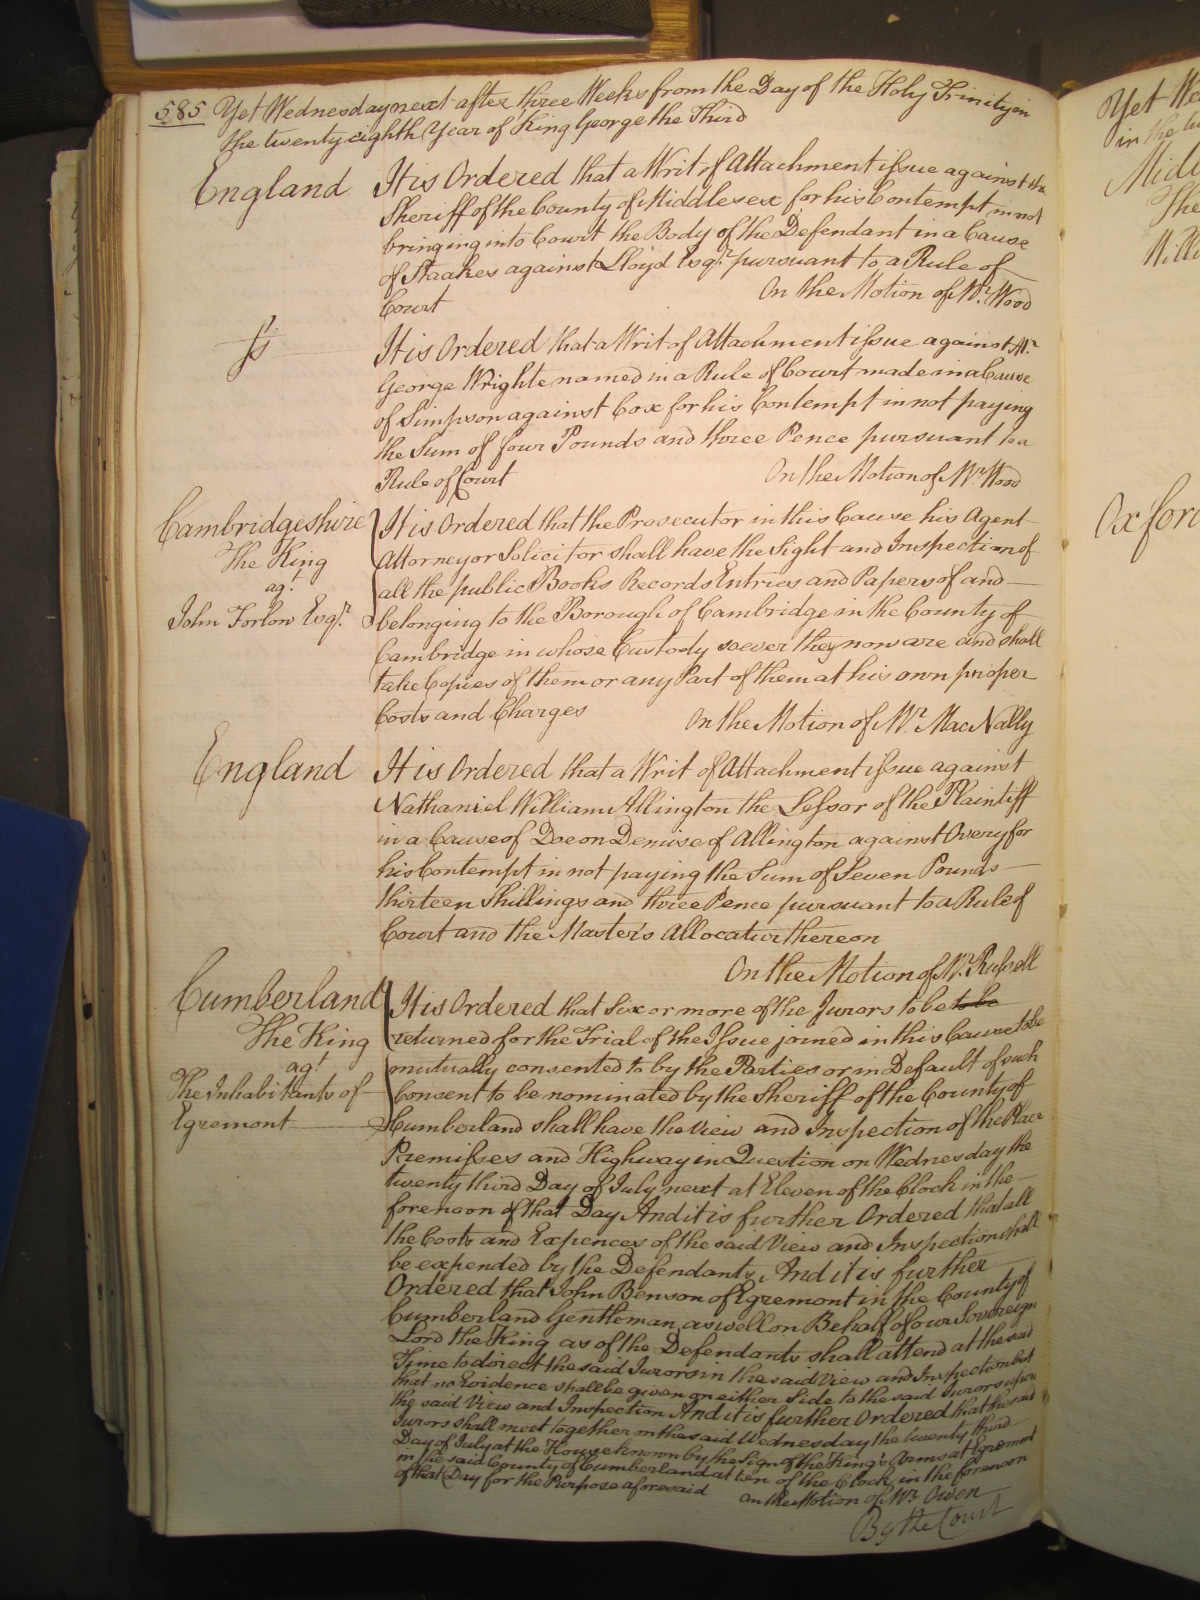 585 Yet Wednesday next after three Weeks from the Day of the Holy Trinity in
the twenty eighth Year of King George the Third
England
It is Ordered that a Writ of Attachment issue against the
Sheriff of the County of Middlesex for his Contempt in not
bringing into Court the Body of the Defendant in a Cause
of Staakes against Lloyd Esqr. pursuant to a Rule of
Court
On the Motion of Mr. Wood
It is Ordered that a Writ of Attachment issue against Mr.
George Wrighte named in a Rule of Court made in a Cause
of Simpson against Cox for his Contempt in not paying
the Sum of four Pounds and three Pence pursuant to a
Rule of Court
On the Motion of Mr. Wood
Cambridgeshire
The King
agt.
John Forlow Esqr.
It is Ordered that the Prosecutor in this Cause his Agent
Attorney or Solicitor shall have the Sight and Inspection of
all the public Books Records Entries and Papers of and
belonging to the Borough of Cambridge in the County of
Cambridge in whose Custody soever they now are and shall
take Copies of them or any Part of them at his own proper
Costs and Charges
On the Motion of Mr. MacNally
England
It is Ordered that a Writ of Attachment issue against
Nathaniel William Allington the Lessor of the Plaintiff
in a Cause of Doe on Demise of Allington against Overy for
his Contempt in not paying the Sum of Seven Pounds
thirteen Shillings and three Pence pursuant to a Rule of
Court and the Master's Allocatur thereon
On the Motion of Mr. Russell
Cumberland
The King
agt.
The Inhabitants of
Egremont
It is Ordered that Six or more of the Jurors to be to be
returned for the Trial of the Issue joined in this Cause to be
mutually consented to by the Parties or in Default of such
Consent to be nominated by the Sheriff of the County of
Cumberland shall have the View and Inspection of the Place
Premisses and Highway in Question on Wednesday the
twenty third Day of July next at Eleven of the Clock in the
forenoon of that Day And it is further Ordered that all
the Costs and Expences of the said View and Inspection shall
be expended by the Defendants, And it is further
Ordered that John Benson of Egremont in the County of
Cumberland Gentleman as well on Behalf of our Sovereign
Lord the King as of the Defendants shall attend at the said
Time to direct the said Jurors in the said View and Inspection but
that no Evidence shall be given on either Side to the said Jurors upon
the said View and Inspection And it is further Ordered that the said
Jurors shall meet together on the said Wednesday the twenty third
Day of July at the House known by the Sign of the King's Arms at Egremont
in the said County of Cumberland at ten of the Clock in the forenoon
of that Day for the Purpose aforesaid
On the Motion of Mr. Owen
By the Court
Yet We
in the
Midd
The
Willi
Oxford